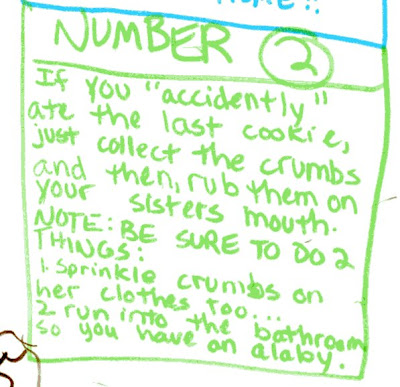 HOME!!
NUMBER 2
If you "accidently"
ate the last cookie,
just collect the crumbs
and then, rub them on
your sisters mouth.
NOTE: BE SURE TO DO 2
THINGS:
1. Sprinkle crumbs on
her clothes too...
2 run into the bathroom
so you have an alaby.